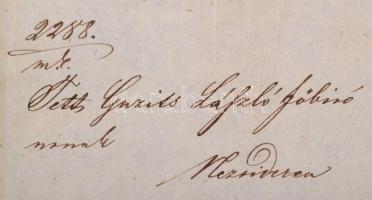 2288.
mk.
Tett Guzits László főbiró
urnak
Nezsiderea